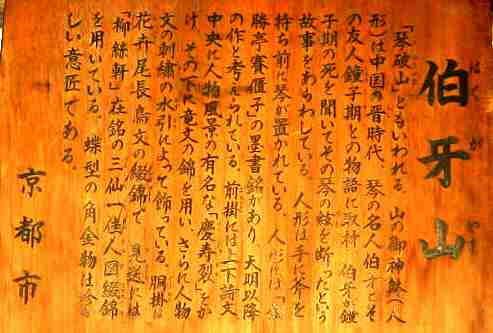 伯牙山
はくがやま
「琴破山」ともいわれる。山の御神躰(人
形)は中国の晋時代、琴の名人伯牙とそ
の友人鐘子期との物語に取材、伯牙が鐘
子期の死を聞いてその琴の絃を断ったという
故事をあらわしている。人形は手に斧を
持ち前に琴が置かれている。人形には「金
勝亭賽偃子」の墨書銘があり、天明以降
の作と考えられている。前掛には上下詩文
中央に人物風景の有名な「慶寿裂」をか
け、その下に竜文の錦を用い、さらに人物
文の刺繍の水引によって飾っている。胴掛は
花卉尾長鳥文の綴錦で、見送には
「柳絲軒」在銘の三仙二佳人図綴錦
を用いている。蝶型の角金物は珍ら
しい意匠である。
京都市